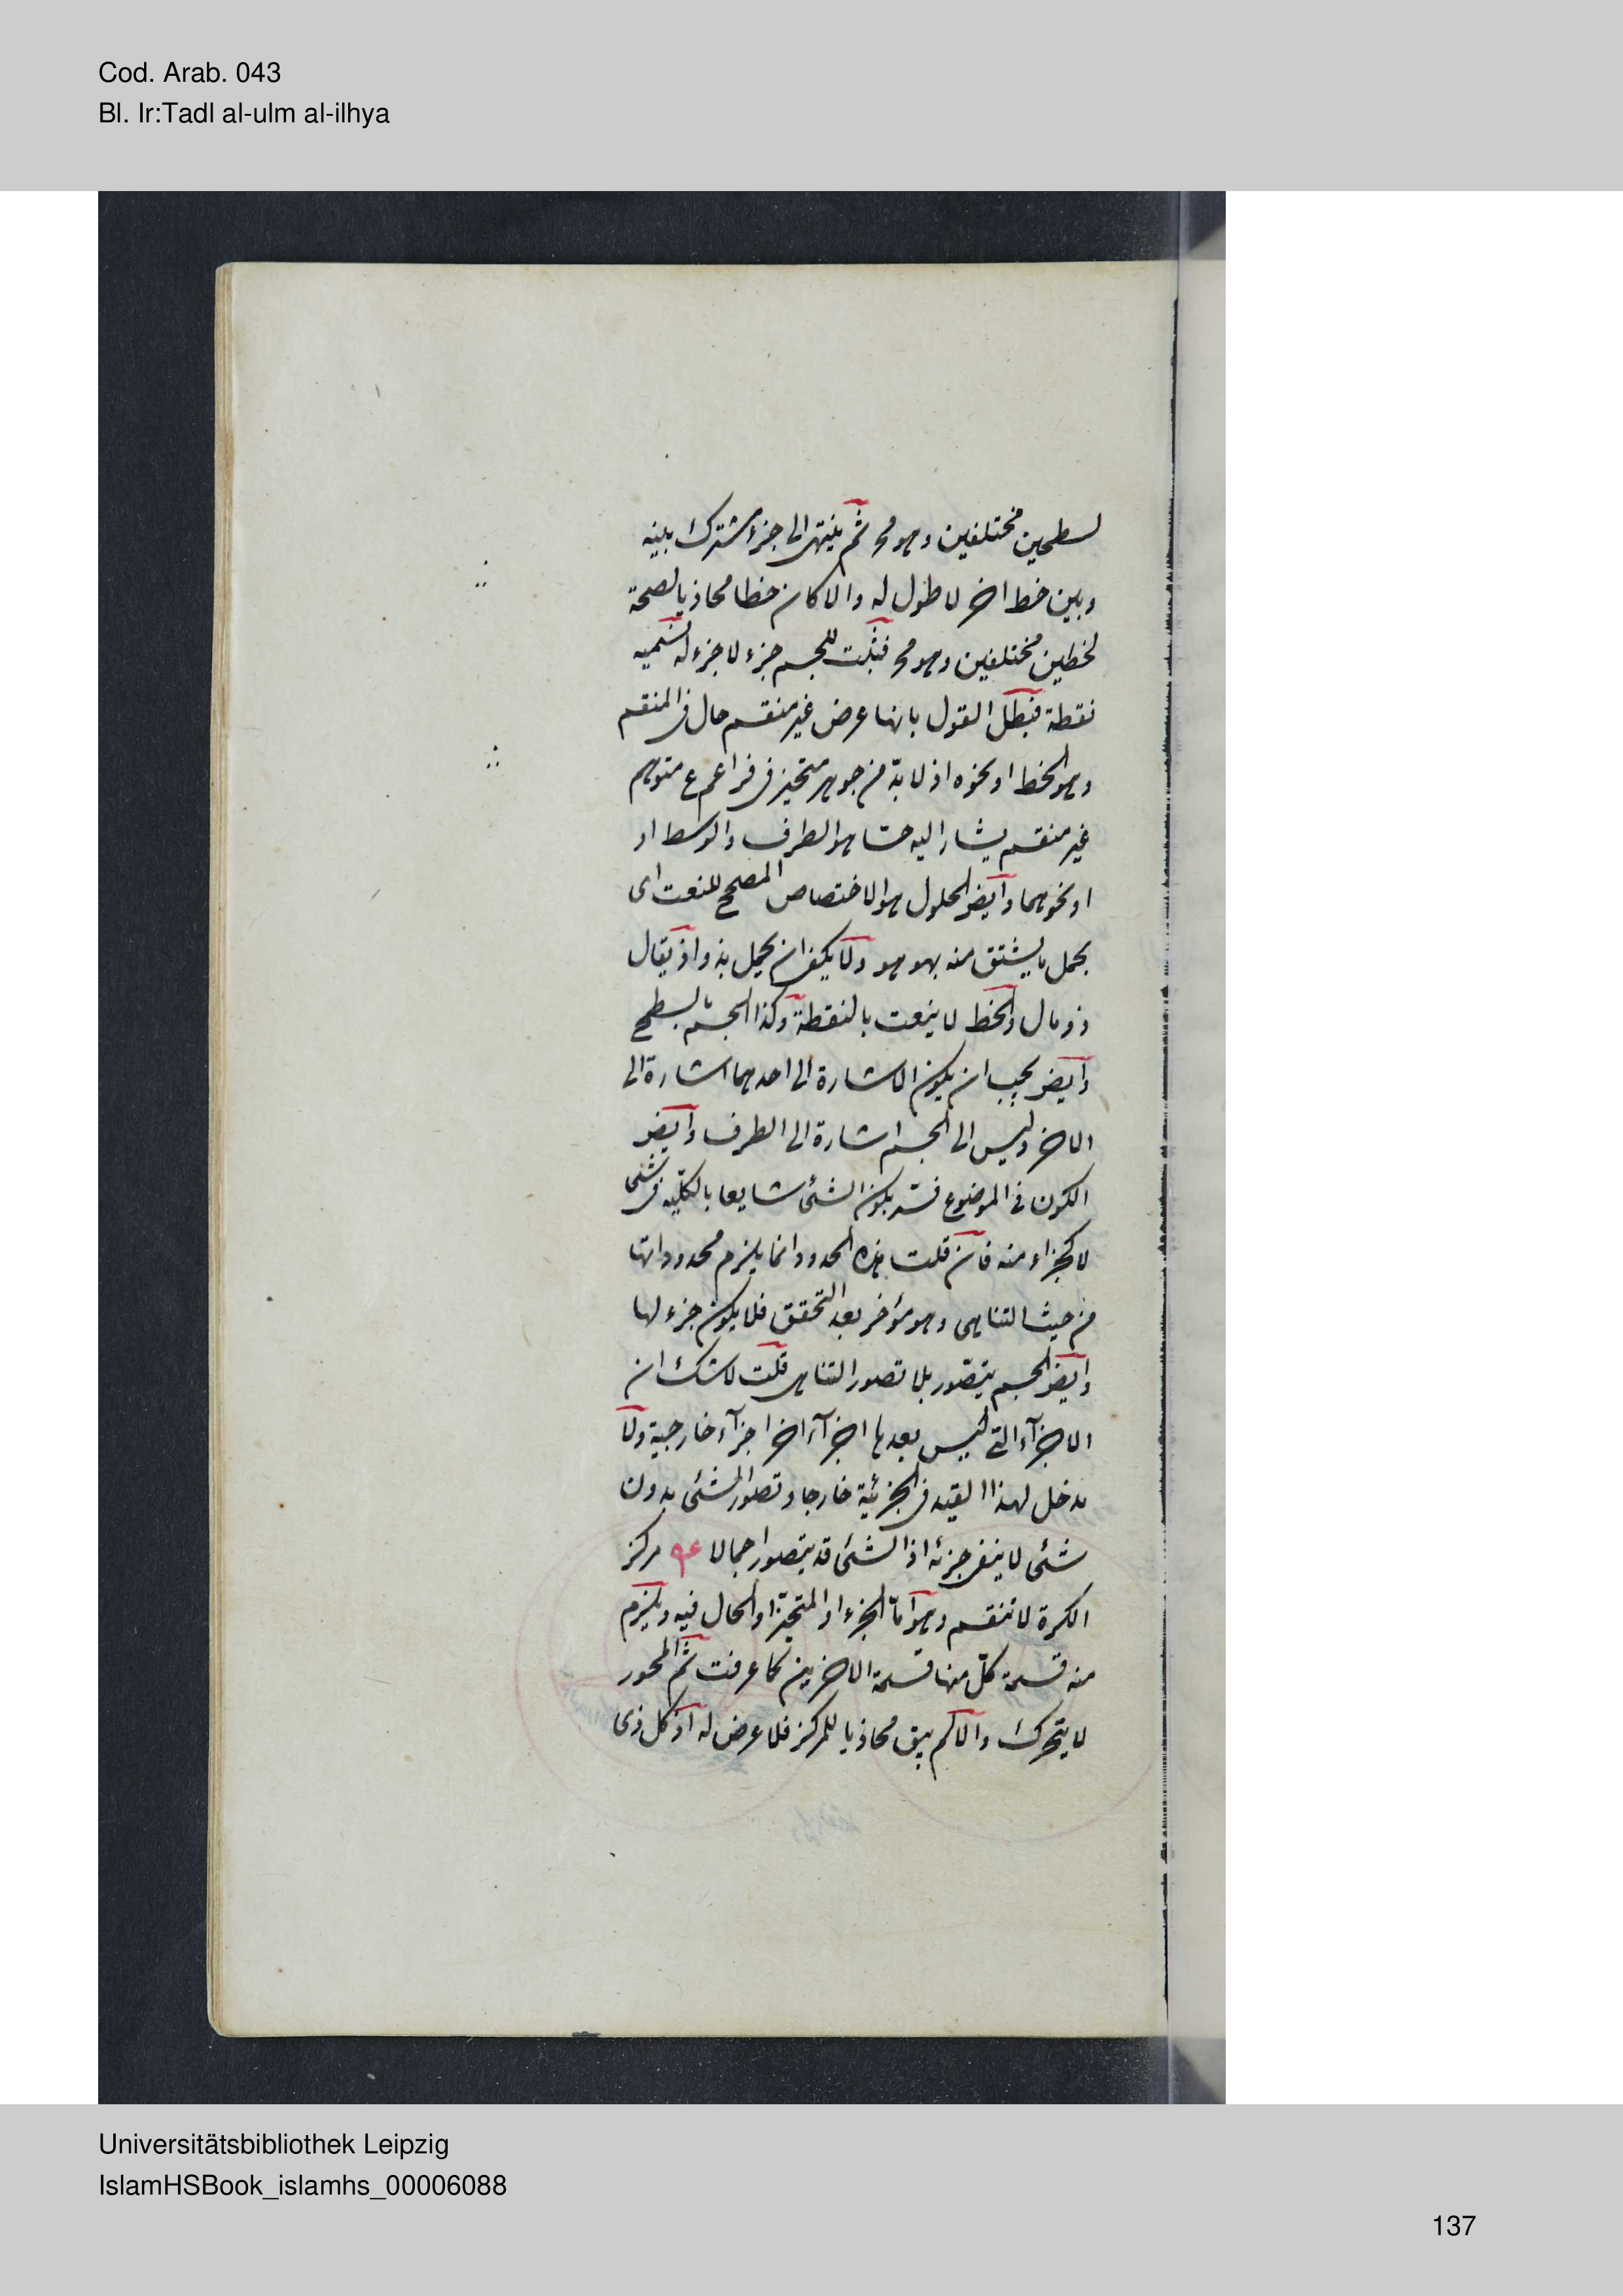 Cod. Arab. 043
Bl. Ir:Tadl al-ulm al-ilhya
لسطحين مختلفين وهو مح ثم ينتهى الى جزء مشترك بينه
وبين خط اخر لا طول له والا كان خطا محاذيا لصحة
لخطين مختلفين وهو مح فثبت للجسم جزء لا جزء له نسميه
نقطة فبطل القول بانها عرض غير منقسم حال فى المنقسم
وهو الخط او نحوه اذ لا بد من جوهر متحيز فى متوهم
غير منقسم يشار اليه حسا هو الطرف والوسط او
او نحوهما وايض الحلول هو الاختصاص المصحح للنعت اى
بحمل ما يشتق منه بهو هو ولا يكفى ان يحمل بذو اذ يقال
ذو مال والخط لا ينعت بالنقطة وكذا الجسم بالسطح
وايض يجب ان يكون الاشارة الى احدهما اشارة الى
الاخر وليس الى الجسم اشارة الى الطرف وايض
الكون فى الموضوع فسر بكون الشئ شايعا بالكلية فى شئ
لا كجزء منه فان قلت هذه الحدود انما يلزم محدوداتها
من حيث التناهى وهو مؤخر بعد التحقق فلا يكون جزء لها
وايض الجسم يتصور بلا تصور التناهى قلت لا شك ان
الاجزآء التى ليس بعدها اجزآء اخر اجزآء خارجية ولا
مدخل لهذا القيد فى الجزئية خارجا وتصور الشئ بدون
شئ لا ينفى جزئه اذ الشئ قد يتصور اجمالا مركز
الكرة لا تنقسم وهو اما الجزء او المتحيز او الحال فيه ويلزم
منه قسمة كل منها قسمة الاخرين كما عرفت ثم المحور
لا يتحرك والا لم يبق محاذيا للمركز فلا عرض له اذ كل ذى
Universitätsbibliothek Leipzig
IslamHSBook_islamhs_00006088
137